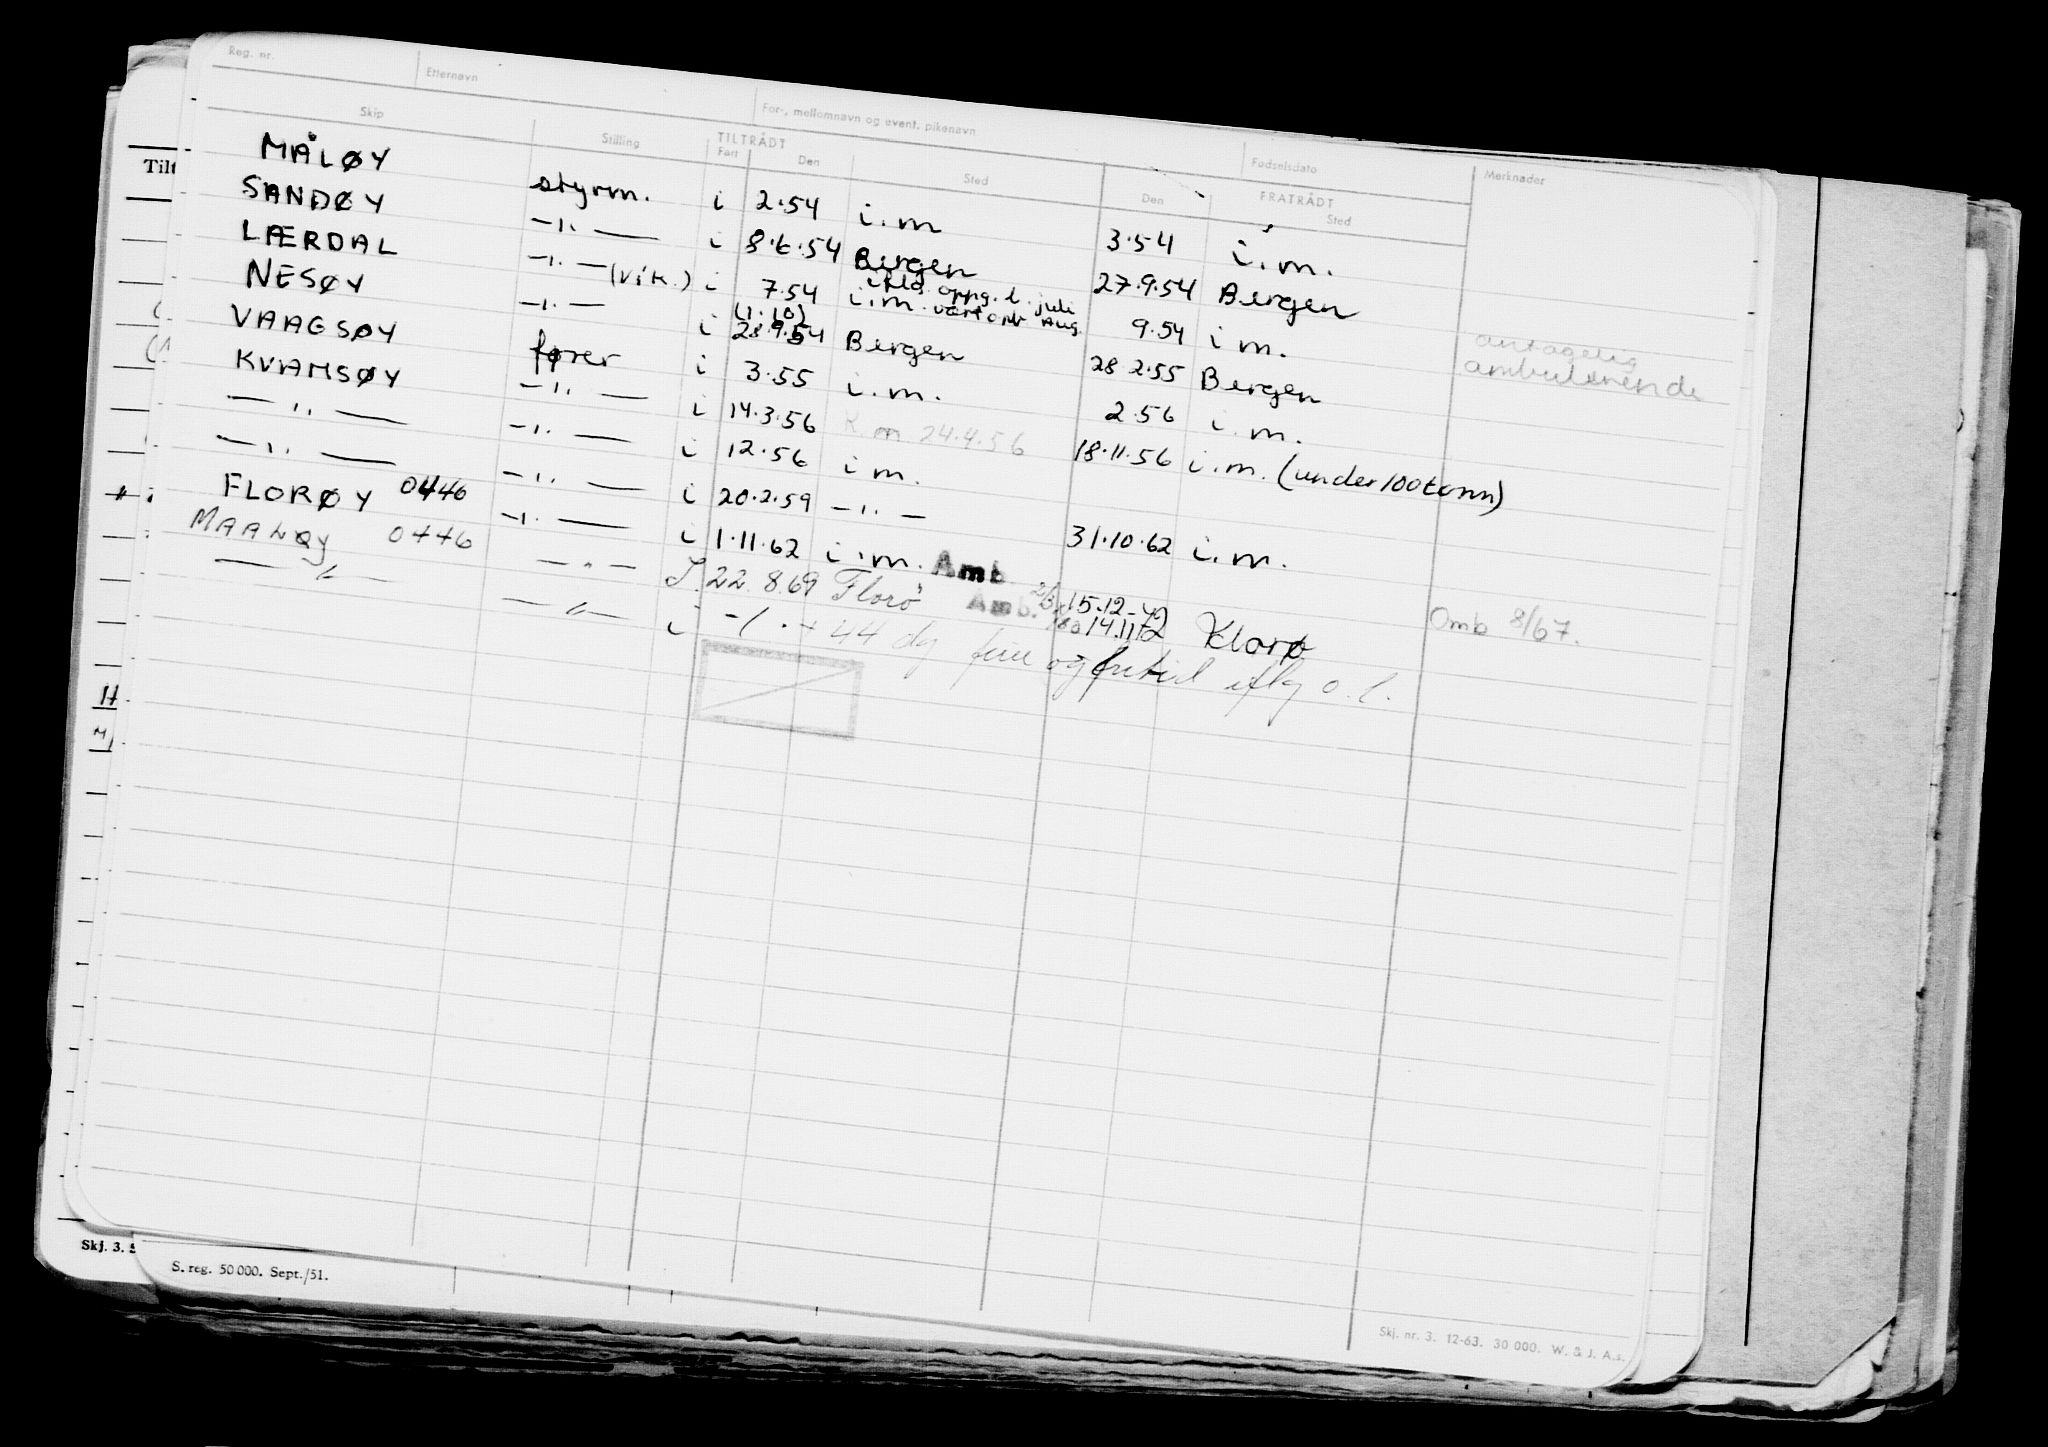 Reg. nr. Etternavn For-, mellomnavn og event. pikenavn Fødselsdato Merknader
Skip Stilling TILTRÅDT FRATRÅDT
Fart Den Sted Den Sted
MÅLØY styrm. i 2.54 i.m 3.54 i.m.
SANDØY -"- i 8.6.54 Bergen 27.9.54 Bergen
LÆRDAL -"- (vik.) i 7.54 i.m. 9.54 i m.
NESØY -"- i (1.10) 28.9.54 Bergen 28 2.55 Bergen antagelig ambulerende
VAAGSØY fører i 3.55 i.m. 2.56 i.m.
KVAMSØY -"- i 14.3.56 24.4.56 18.11.56 i.m. (under 100 tonn)
-"- -"- i 12.56 i m.
-"- -"- i 20.2.59 -"- 31.10.62 i.m.
FLORØY 0446 -"- i 1.11.62 i.m. Amb. Omb 8/67.
MAALØY 0446 -"- I. 22.8.69 Florø Amb. 15.12
-"- -"- i 14.11.72 Florø
44 dg og fritid iflg o.l.
Tilt
H
M
Skj. 3.
S. reg. 50 000. Sept./51.
Skj. nr. 3. 12-63. 30 000. W. & J. A.s.